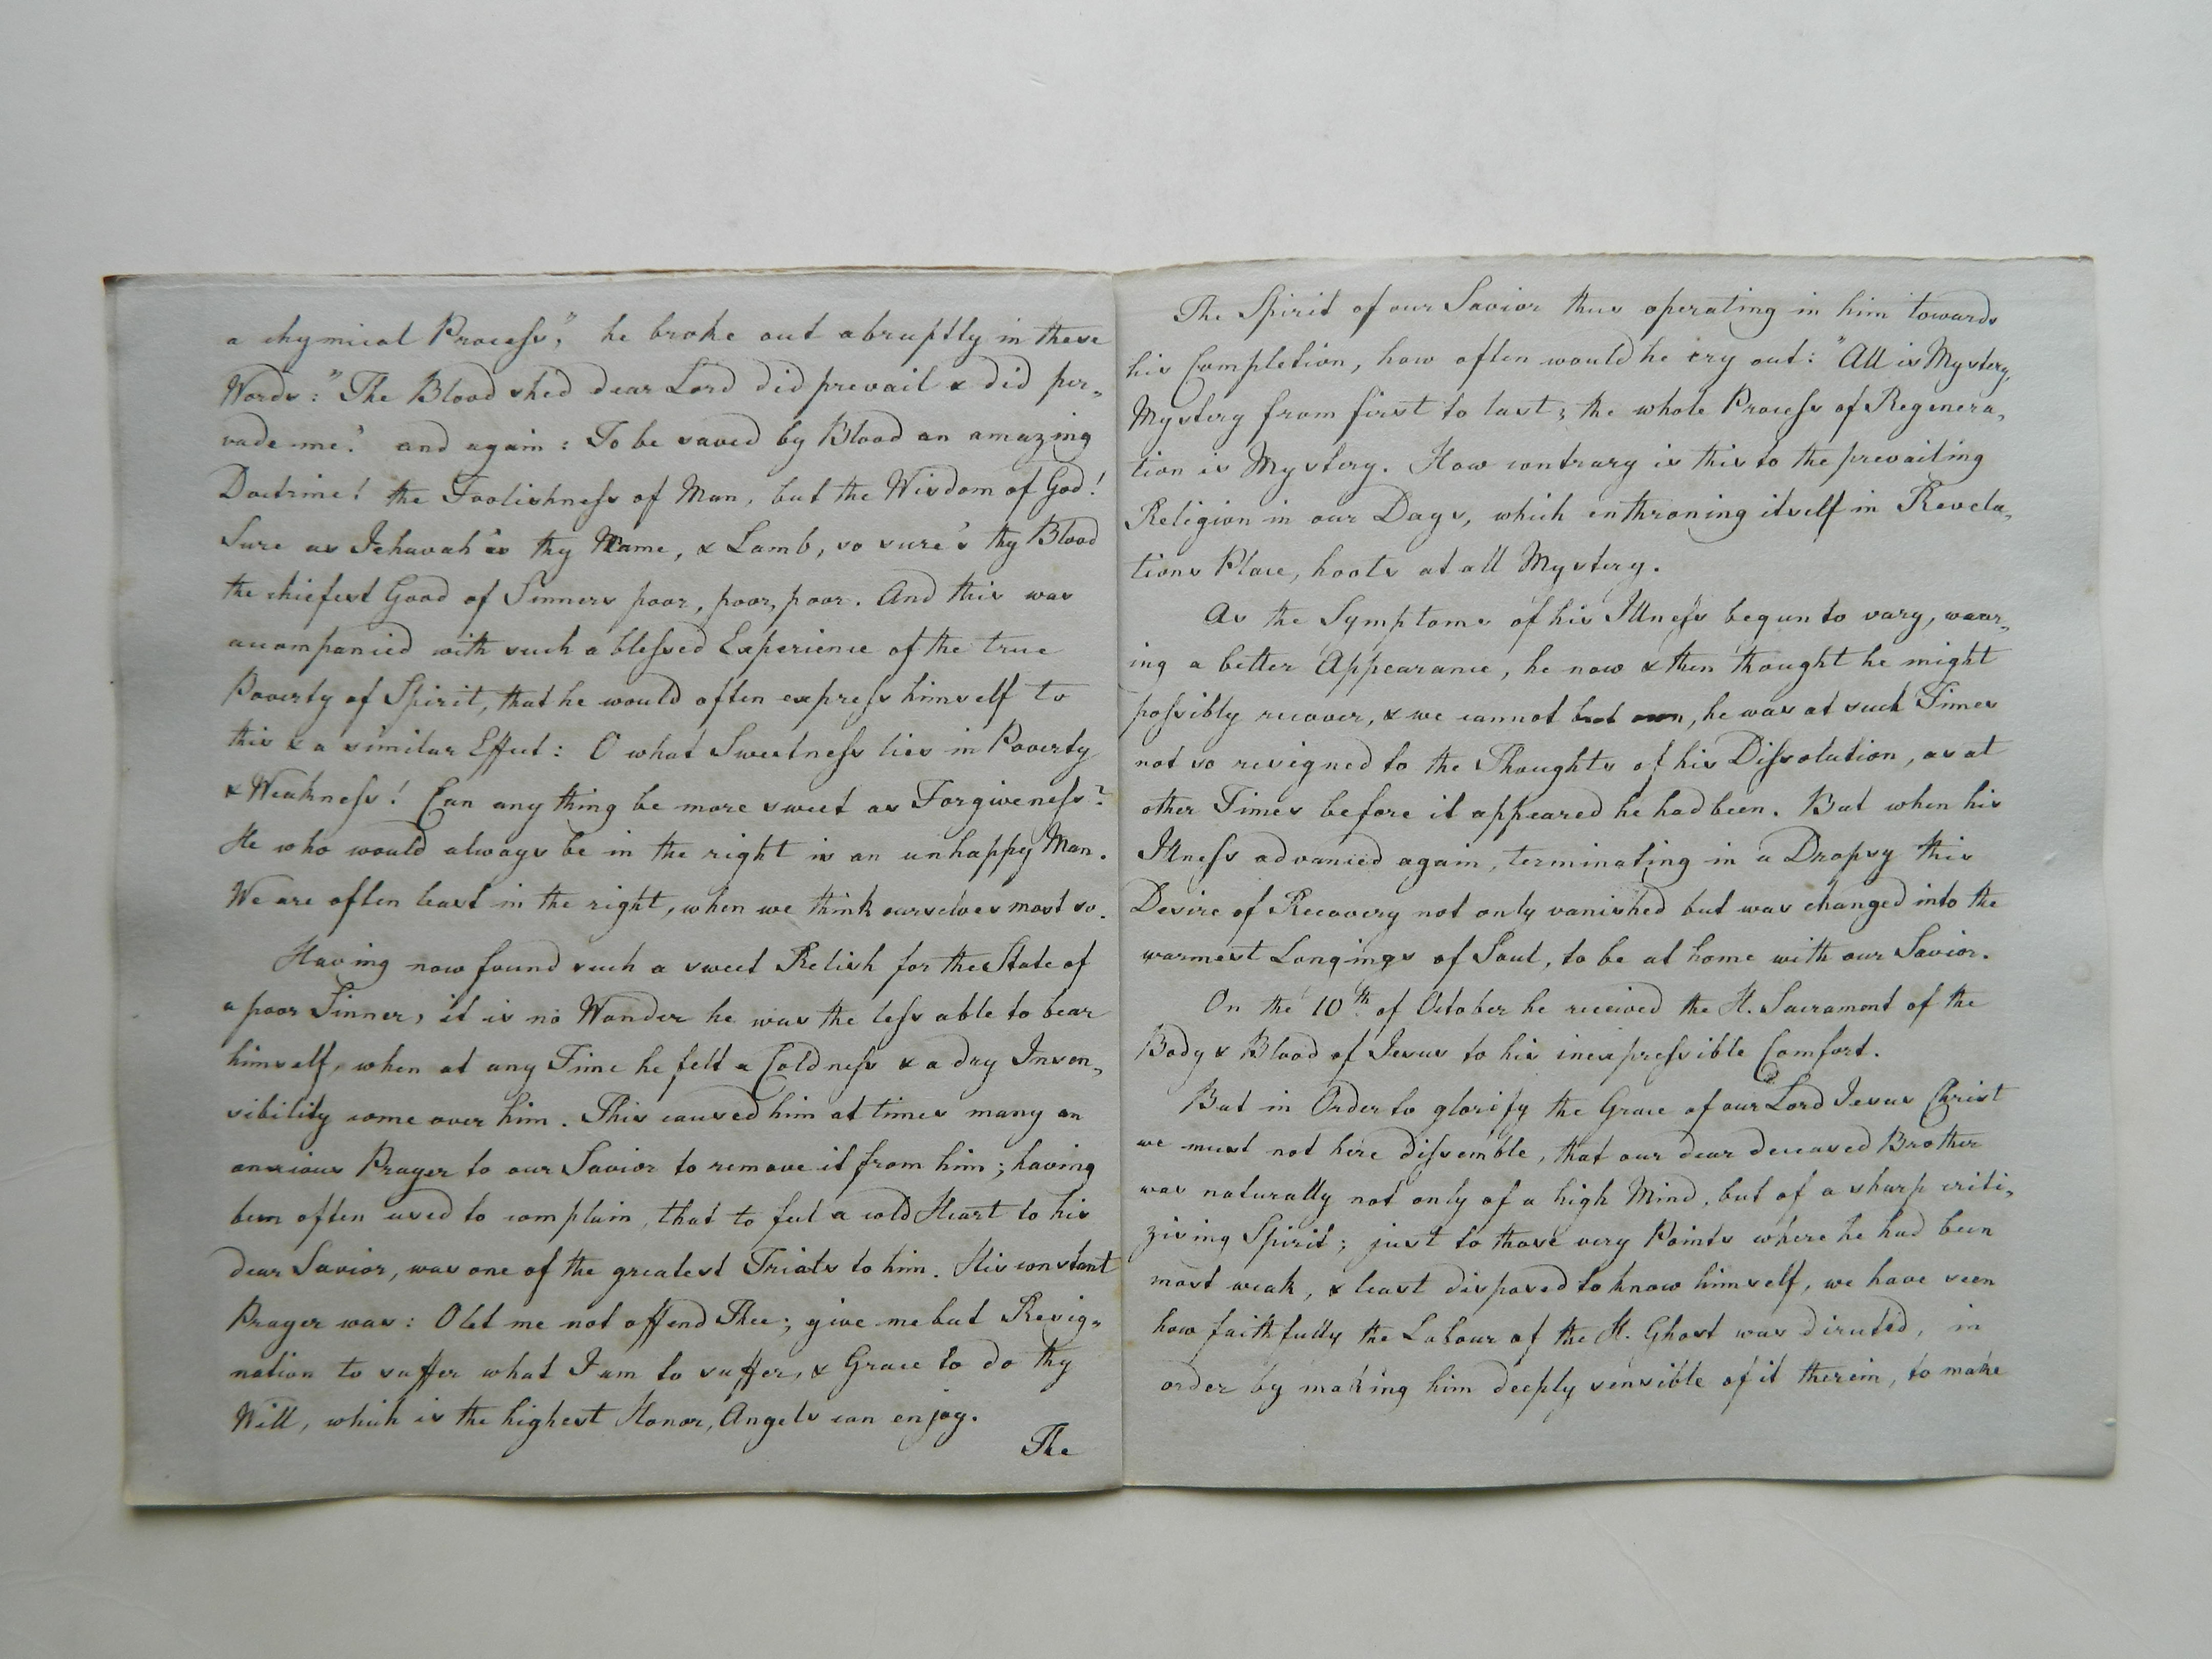 a chymical Process," he broke out abruptly in these
Words: "The Blood shed dear Lord did prevail & did per-
vade me." and again: To be saved by Blood an amazing
Doctrine! the Foolishness of Man, but the Wisdom of God!
Sure as Jehovah is thy Name, & Lamb, so sure's thy Blood
the chiefest Good of Sinners poor, poor, poor. And this was
accompanied with such a blessed Experience of the true
Poverty of Spirit, that he would often express himself to
this & a similar Effect: O what Sweetness lies in Poverty
& Weakness! Can any thing be more sweet as Forgiveness?
He who would always be in the right is an unhappy Man.
We are often least in the right, when we think ourselves most so.
Having now found such a sweet Relish for the State of
a poor Sinner, it is no Wonder he was the less able to bear
himself, when at any Time he felt a Coldness & a dry Insen-
sibility come over him. This caused him at times many an
anxious Prayer to our Savior to remove it from him; having
been often used to complain, that to feel a cold Heart to his
dear Savior, was one of the greatest Trials to him. His constant
Prayer was: O let me not offend Thee; give me but Resig-
nation to suffer what I am to suffer, & Grace to do thy
Will, which is the highest Honor, Angels can enjoy.
The
The Spirit of our Savior thus operating in him towards
his Completion, how often would he cry out: "All is Mystery,
Mystery from first to last; the whole Process of Regenera-
tion is Mystery. How contrary is this to the prevailing
Religion in our Days, which enthroning itself in Revela-
tions Place, hoots at all Mystery.
As the Symptoms of his Illness begun to vary, wear-
ing a better Appearance, he now & then thought he might
possibly recover, & we cannot but own, he was at such Times
not so resigned to the Thoughts of his Dissolution, as at
other Times before it appeared he had been. But when his
Illness advanced again, terminating in a Dropsy this
Desire of Recovery not only vanished but was changed into the
warmest Longings of Soul, to be at home with our Savior.
On the 10th of October he received the H. Sacrament of the
Body & Blood of Jesus to his inexpressible Comfort.
But in Order to glorify the Grace of our Lord Jesus Christ
we must not here dissemble, that our dear deceased Brother
was naturally not only of a high Mind, but of a sharp criti-
zising Spirit; just to those very Points where he had been
most weak, & least disposed to know himself, we have seen
how faithfully the Labour of the H. Ghost was directed, in
order by making him deeply sensible of it therein, to make